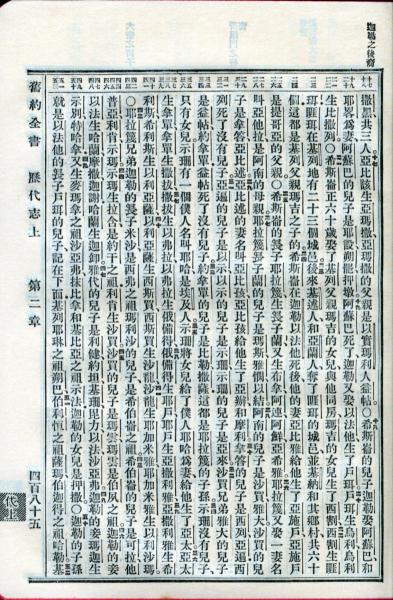 迦勒之後裔
撒黑共三人亞比該生亞瑪撒亞瑪撒的父親是以實瑪利人益帖○希斯崙的兒子迦勒娶阿蘇巴和
耶畧爲妻阿蘇巴的兒子是耶設朔罷押墩阿蘇巴死了迦勒又娶以法他生了戶珥戶珥生烏利烏利
生比撒列○希斯崙正六十歲娶了基列父親瑪吉的女兒與他同房瑪吉的女兒生了西割西割生睚
珥睚珥在基列地有二十三個城邑後來基述人和亞蘭人奪了睚珥的城邑並基納和其鄉村共六十
個這都是基列父親瑪吉之子的希斯崙在迦勒以法他死後他的妻亞比雅給他生了亞施戶亞施戶
是提哥亞的父親○希斯崙的長子耶拉篾生長子蘭又生布拿阿連阿鮮亞希雅耶拉篾又娶一妻名
叫亞他拉是阿南的母親耶拉篾長子蘭的兒子是瑪斯雅憫以結阿南的兒子是沙買雅大沙買的兒
子是拿答亞比述亞比述的妻名叫亞比孩亞比孩給他生了亞辦和摩利拿答的兒子是西列亞遍西
列死了沒有兒子亞遍的兒子是以示以示的兒子是示珊示珊的兒子是亞來沙買兄弟雅大的兒子
是益帖約拿單益帖死了沒有兒子約拿單的兒子是比勒撒薩這都是耶拉篾的子孫示珊沒有兒子
只有女兒示珊有一個僕人名叫耶哈是埃及人示珊將女兒給了僕人耶哈爲妻給他生了亞太亞太
生拿單拿單生撒拔撒拔生以弗拉以弗拉生俄備得俄備得生耶戶耶戶生亞撒利雅亞撒利雅生希
利斯希利斯生以利亞薩以利亞薩生西斯買西斯買生沙龍沙龍生耶加米雅耶加米雅生以利沙瑪
○耶拉篾兄弟迦勒的長子米沙是西弗之祖瑪利沙的兒子是希伯崙之祖希伯崙的兒子是可拉他
普亞利肯示瑪示瑪生拉含是約干之祖利肯生沙買沙買的兒子是瑪雲瑪雲是伯夙之祖迦勒的妾
以法生哈蘭摩撒迦謝哈蘭生迦卸雅代的兒子是利健約坦基珊毘力以法沙亞弗迦勒的妾瑪迦生
示別特哈拿又生麥瑪拿之祖沙亞弗抹比拿和基比亞之祖示法迦勒的女兒是押撒○迦勒的子孫
就是以法他的長子戶珥的兒子記在下面基列耶琳之祖朔巴伯利恒之祖薩瑪伯迦得之祖哈勒基
舊約全書 歷代志上 第二章 四百八十五
代上